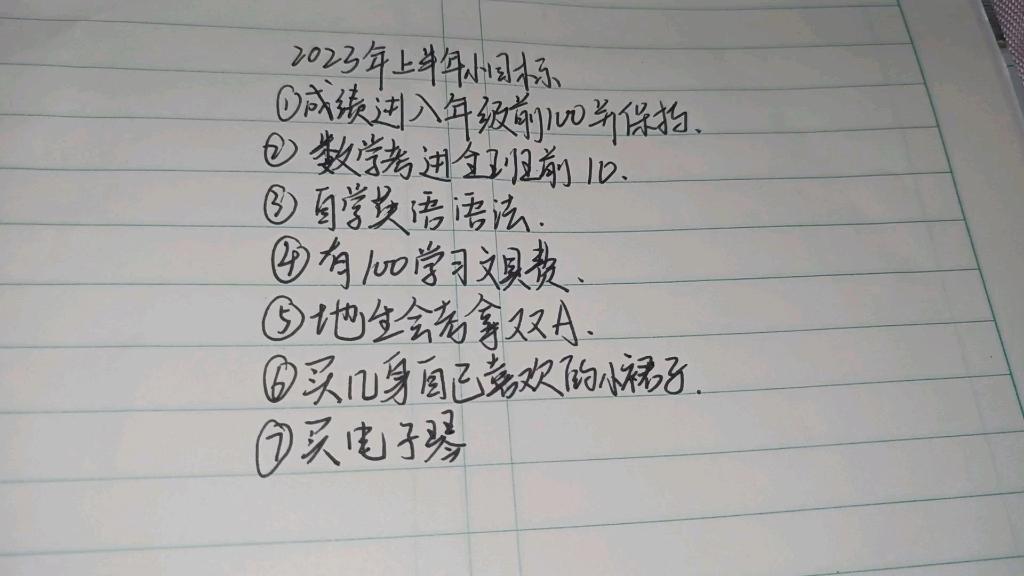 2023年上半年小目标
①成绩进入年级前100并保持.
②数学考进全班前10.
③自学英语语法.
④有100学习文具费.
⑤地生会考拿双A.
⑥买几身自己喜欢的小裙子.
⑦买电子琴